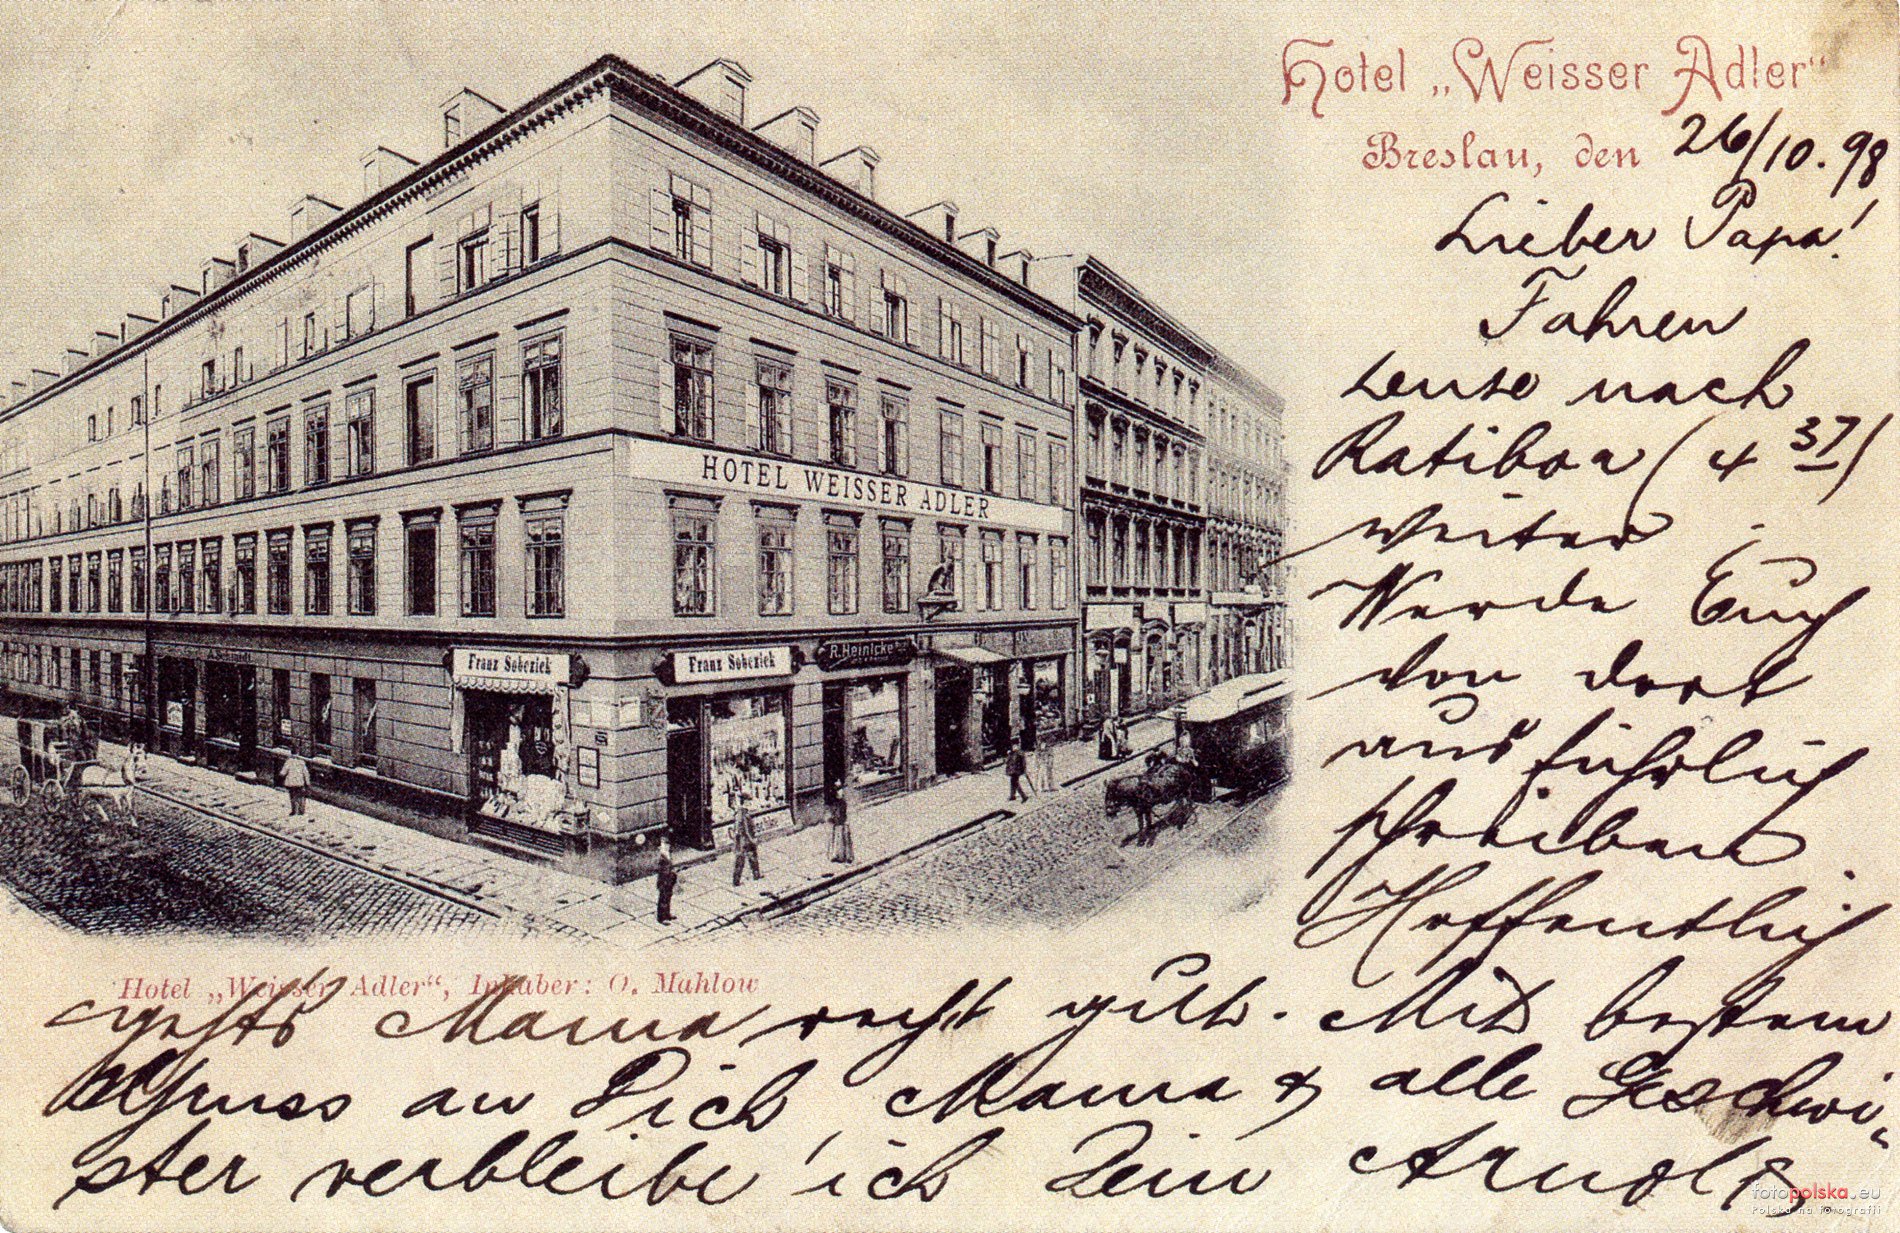 Hotel „Weisser Adler“
Breslau, den 26/10.98
Lieber Papa!
Fahren
heute nach
Ratibor (4 37)
weiter.
Werde Euch
von dort
ausführlich
schreiben.
Hoffentlich
HOTEL WEISSER ADLER
Franz Sobcziek
Franz Sobcziek
R. Heinicke
Hotel „Weisser Adler“, Inhaber: O. Mahlow
gehts Mama recht gut. Mit bestem
Gruss an Dich, Mama & alle Geschwi-
ster verbleibe ich Dein Arnold
fotopolska.eu
Polska na fotografii